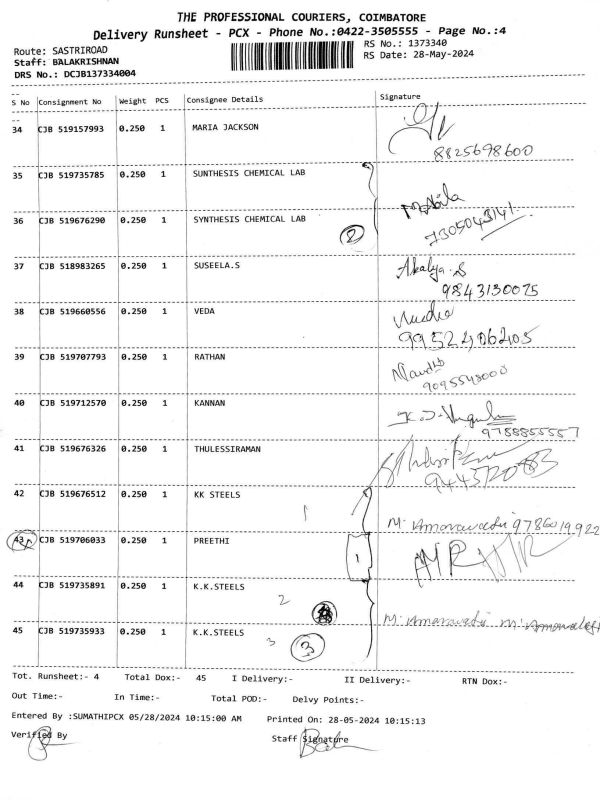 THE PROFESSIONAL COURIERS, COIMBATORE
Delivery Runsheet - PCX - Phone No.:0422-3505555 - Page No.:4
Route: SASTRIROAD
RS No.: 1373340
Staff: BALAKRISHNAN
RS Date: 28-May-2024
DRS No.: DCJB137334004
S No Consignment No Weight PCS Consignee Details Signature
34 CJB 519157993 0.250 1 MARIA JACKSON
8825698600
35 CJB 519735785 0.250 1 SUNTHESIS CHEMICAL LAB
36 CJB 519676290 0.250 1 SYNTHESIS CHEMICAL LAB
2 7305043141
37 CJB 518983265 0.250 1 SUSEELA.S Akalya.S
9843130075
38 CJB 519660556 0.250 1 VEDA
9952406205
39 CJB 519707793 0.250 1 RATHAN
9095543000
40 CJB 519712570 0.250 1 KANNAN
9788855557
41 CJB 519676326 1 0.250 1 THULESSIRAMAN
42 CJB 519676512 0.250 1 KK STEELS
1 M. Amaravadi
43 CJB 519706033 0.250 1 PREETHI
1
44 CJB 519735891 0.250 1 K.K.STEELS
2 M. Amaravadi
45 CJB 519735933 0.250 1 K.K.STEELS
3 3
Tot. Runsheet:- 4 Total Dox:- 45 I Delivery:- II Delivery:- RTN Dox:-
Out Time:- In Time:- Total POD:- Delvy Points:-
Entered By :SUMATHIPCX 05/28/2024 10:15:00 AM Printed On: 28-05-2024 10:15:13
Verified By Staff Signature